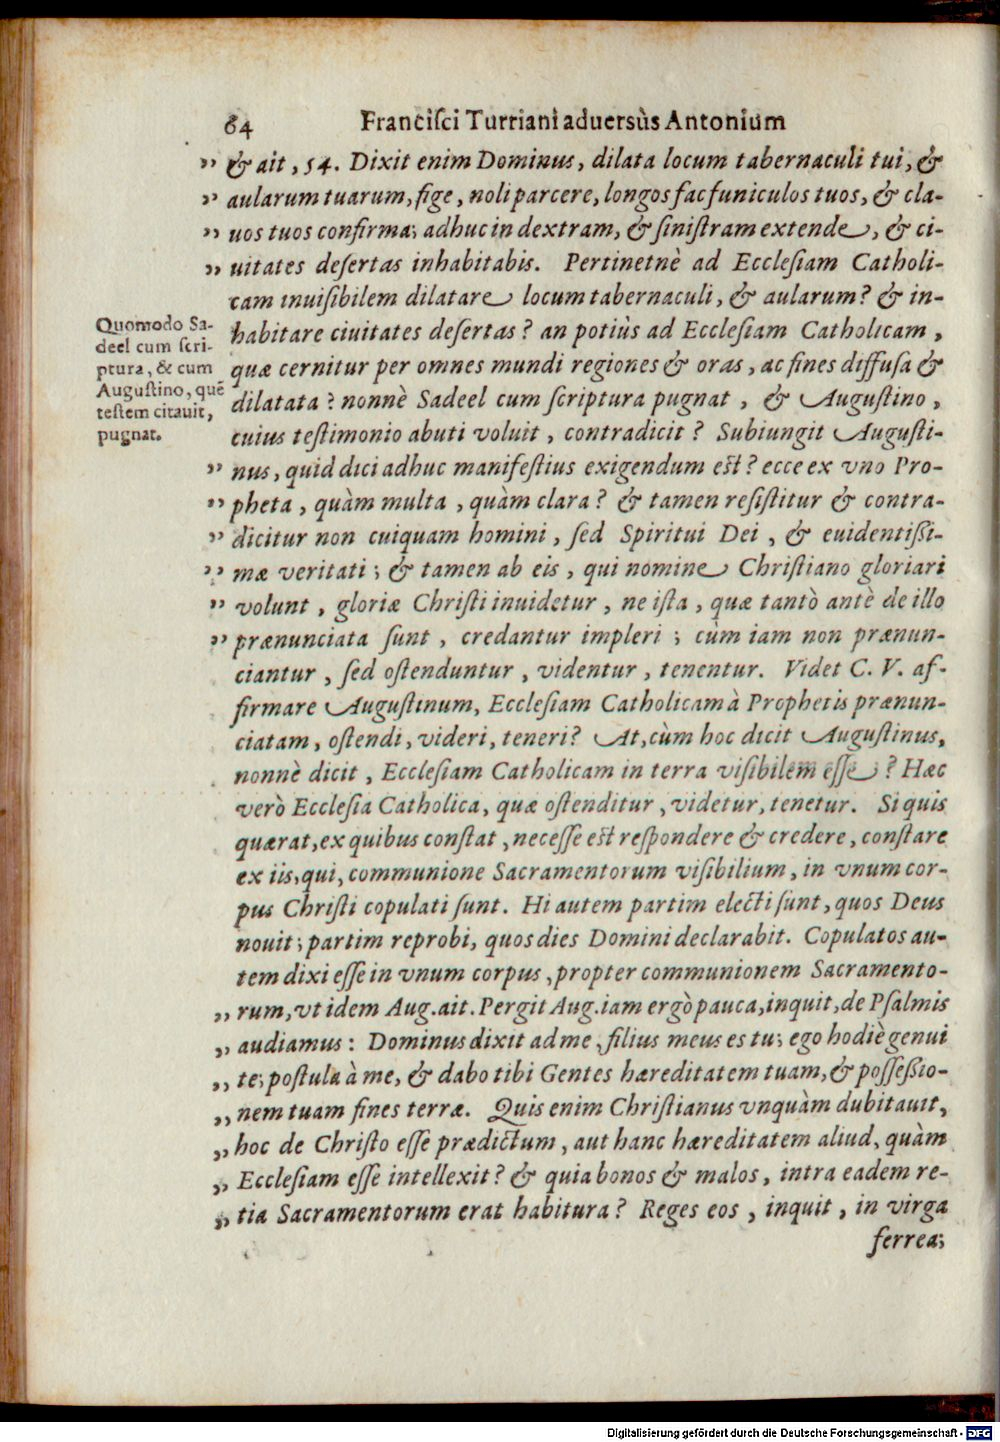 64 Franciſci Turriani aduersùs Antonium
„ & ait, 54. Dixit enim Dominus, dilata locum tabernaculi tui, &
„ aularum tuarum, fige, noli parcere, longos fac funiculos tuos, & cla-
„ uos tuos confirma; adhuc in dextram, & ſiniſtram extende, & ci-
„ uitates deſertas inhabitabis. Pertinetnè ad Eccleſiam Catholi-
cam inuiſibilem dilatare locum tabernaculi, & aularum? & in-
Quomodo Sa-
deel cum ſcri-
ptura, & cum
Auguſtino, quē
teſtem citauit,
pugnat.
habitare ciuitates deſertas? an potiùs ad Eccleſiam Catholicam,
quæ cernitur per omnes mundi regiones & oras, ac fines diffuſa &
dilatata? nonnè Sadeel cum ſcriptura pugnat, & Auguſtino,
cuius teſtimonio abuti voluit, contradicit? Subiungit Auguſti-
„ nus, quid dici adhuc manifeſtius exigendum eſt? ecce ex vno Pro-
„ pheta, quàm multa, quàm clara? & tamen reſiſtitur & contra-
„ dicitur non cuiquam homini, ſed Spiritui Dei, & euidentiſsi-
„ mæ veritati; & tamen ab eis, qui nomine Chriſtiano gloriari
„ volunt, gloriæ Chriſti inuidetur, ne iſta, quæ tantò antè de illo
„ prænunciata ſunt, credantur impleri; cùm iam non prænun-
ciantur, ſed oſtenduntur, videntur, tenentur. Videt C. V. af-
firmare Auguſtinum, Eccleſiam Catholicam à Prophetis prænun-
ciatam, oſtendi, videri, teneri? At, cùm hoc dicit Auguſtinus,
nonnè dicit, Eccleſiam Catholicam in terra viſibilem eſſe? Hæc
verò Eccleſia Catholica, quæ oſtenditur, videtur, tenetur. Si quis
quærat, ex quibus conſtat, neceſſe eſt reſpondere & credere, conſtare
ex iis, qui, communione Sacramentorum viſibilium, in vnum cor-
pus Chriſti copulati ſunt. Hi autem partim electi ſunt, quos Deus
nouit; partim reprobi, quos dies Domini declarabit. Copulatos au-
tem dixi eſſe in vnum corpus, propter communionem Sacramento-
„ rum, vt idem Aug. ait. Pergit Aug. iam ergò pauca, inquit, de Pſalmis
„ audiamus: Dominus dixit ad me, filius meus es tu; ego hodiè genui
„ te; poſtula à me, & dabo tibi Gentes hæreditatem tuam, & poſſeſsio-
„ nem tuam fines terræ. Quis enim Chriſtianus vnquàm dubitauit,
„ hoc de Chriſto eſſe prædictum, aut hanc hæreditatem aliud, quàm
„ Eccleſiam eſſe intellexit? & quia bonos & malos, intra eadem re-
„ tia Sacramentorum erat habitura? Reges eos, inquit, in virga
ferrea;
Digitalisierung gefördert durch die Deutsche Forschungsgemeinschaft - DFG